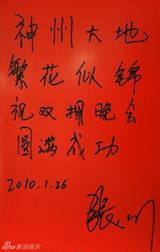 神州大地
繁花似锦
祝双拥晚会
圆满成功
2010.1.26